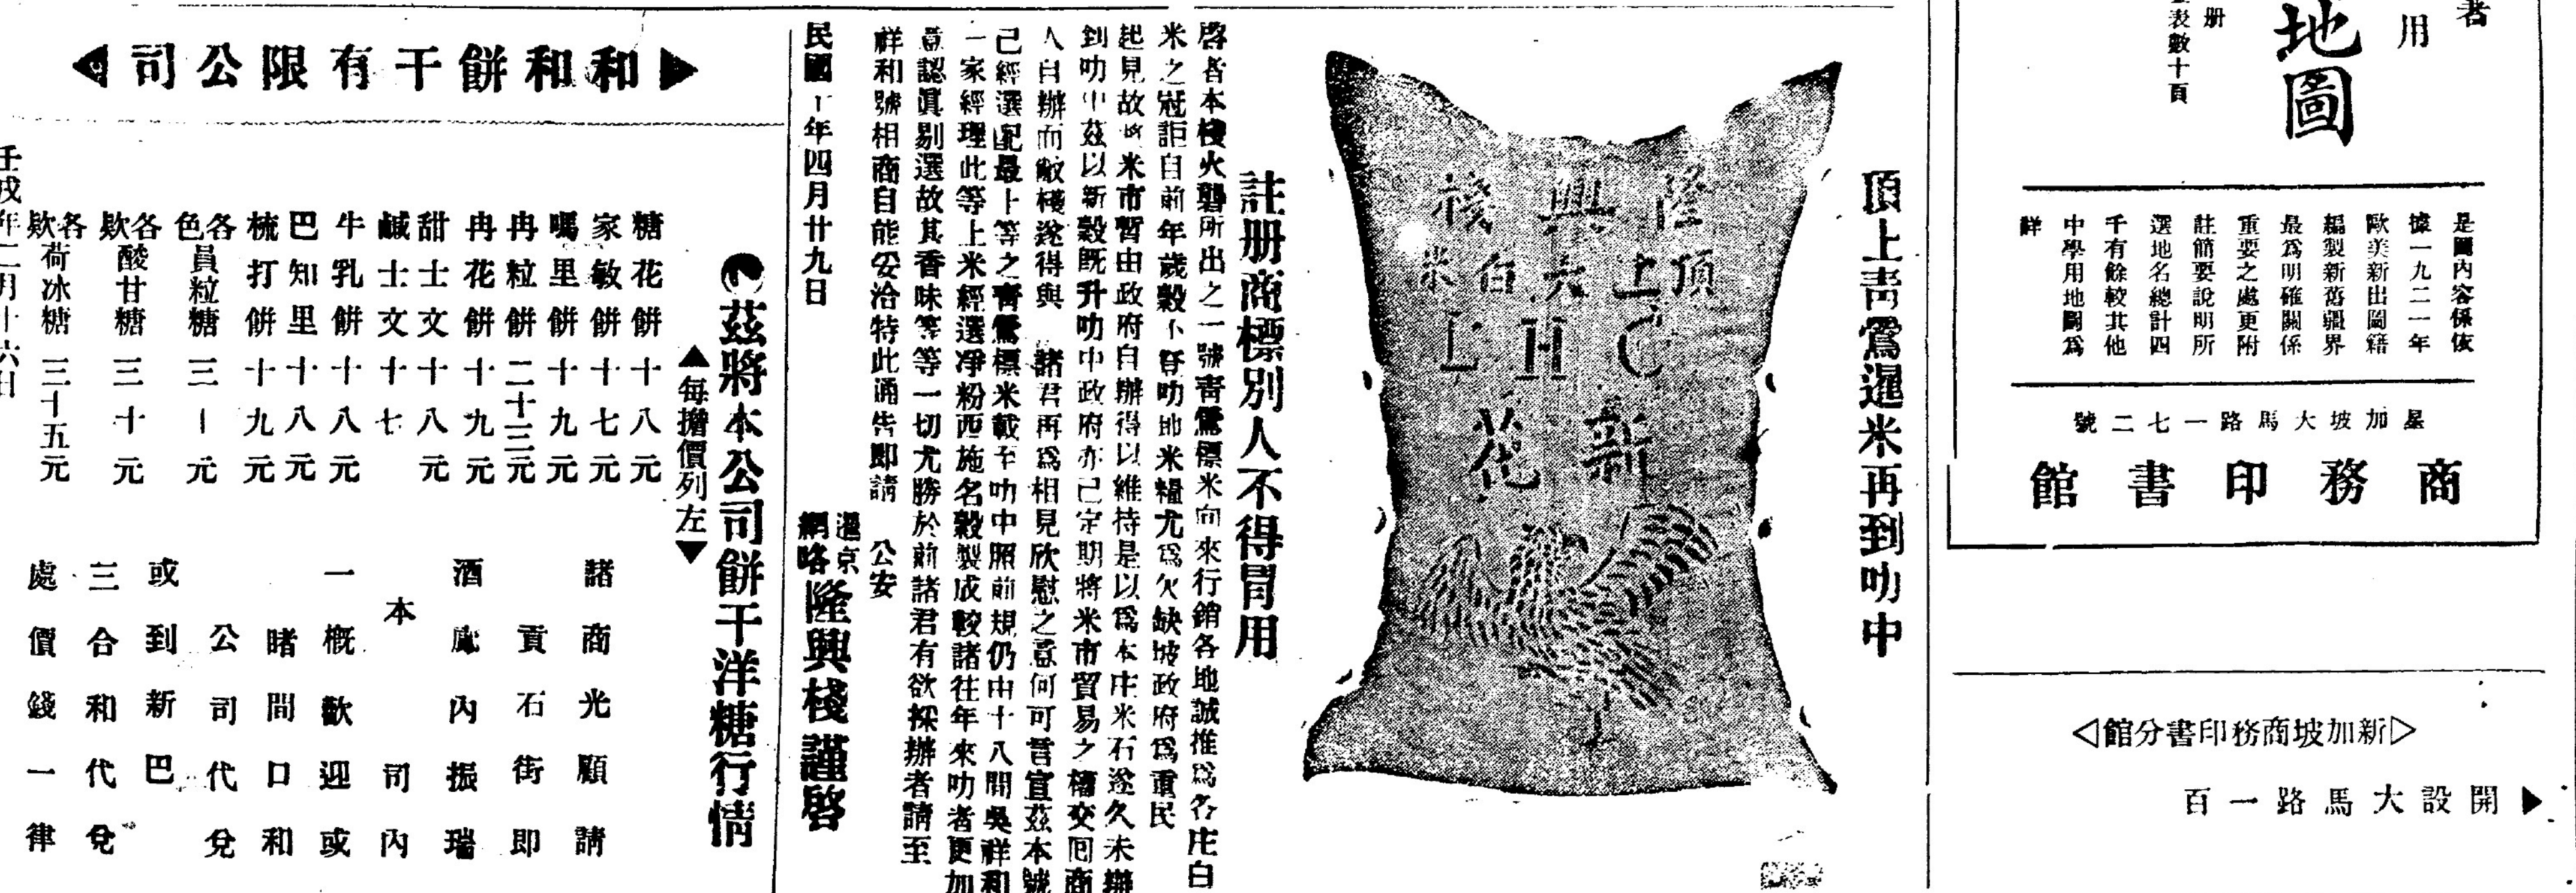 者
用
地圖
册
表數十頁
是圖內容係依
據一九二一年
歐美新出圖籍
編製新舊疆界
最爲明確關係
重要之處更附
註簡要說明所
選地名總計四
千有餘較其他
中學用地圖爲
詳
星加坡大馬路一七二號
商務印書館
新加坡商務印書分館
開設大馬路一百
頂上青鶯暹米再到叻中
隆興棧
頂上大白米
C H L
新花
註册商標別人不得冒用
啓者本棧火礱所出之一號青鶯標米向來行銷各地誠推爲各庄白
米之冠詎自前年歲穀不登叻地米糧尤爲欠缺坡政府爲重民
起見故將米市暫由政府自辦得以維持是以爲本庄米石遂久未辦
到叻中茲以新穀既升叻中政府亦已定期將米市貿易之權交囘商
人自辦而敝棧遂得與 諸君再爲相見欣慰之意何可言宣茲本號
已經選配最上等之青鶯標米載至叻中照前規仍由十八間吳祥和
一家經理此等上米經選凈粉西施名穀製成較諸往年來叻者更加
意認眞剔選故其香味等等一切尤勝於前諸君有欲採辦者請至
祥和號相商自能妥洽特此通告即請 公安
暹京
網咯 隆興棧謹啓
民國十年四月廿九日
和和餅干有限公司
茲將本公司餅干洋糖行情
每擔價列左
糖花餅十八元
家敏餅十七元
嗎里餅十九元
冉粒餅二十三元
冉花餅十九元
甜士文十八元
鹹士文十七
牛乳餅十八元
巴知里十八元
梳打餅十九元
各色員粒糖三十元
各欵酸甘糖三十元
各欵荷冰糖三十五元
諸商光顧請
貢石街即
酒廊內振瑞
本司內
一概歡迎或
睹間口和
公司代兌
或到新巴
三合和代兌
處價錢一律
壬戌年二月十六日